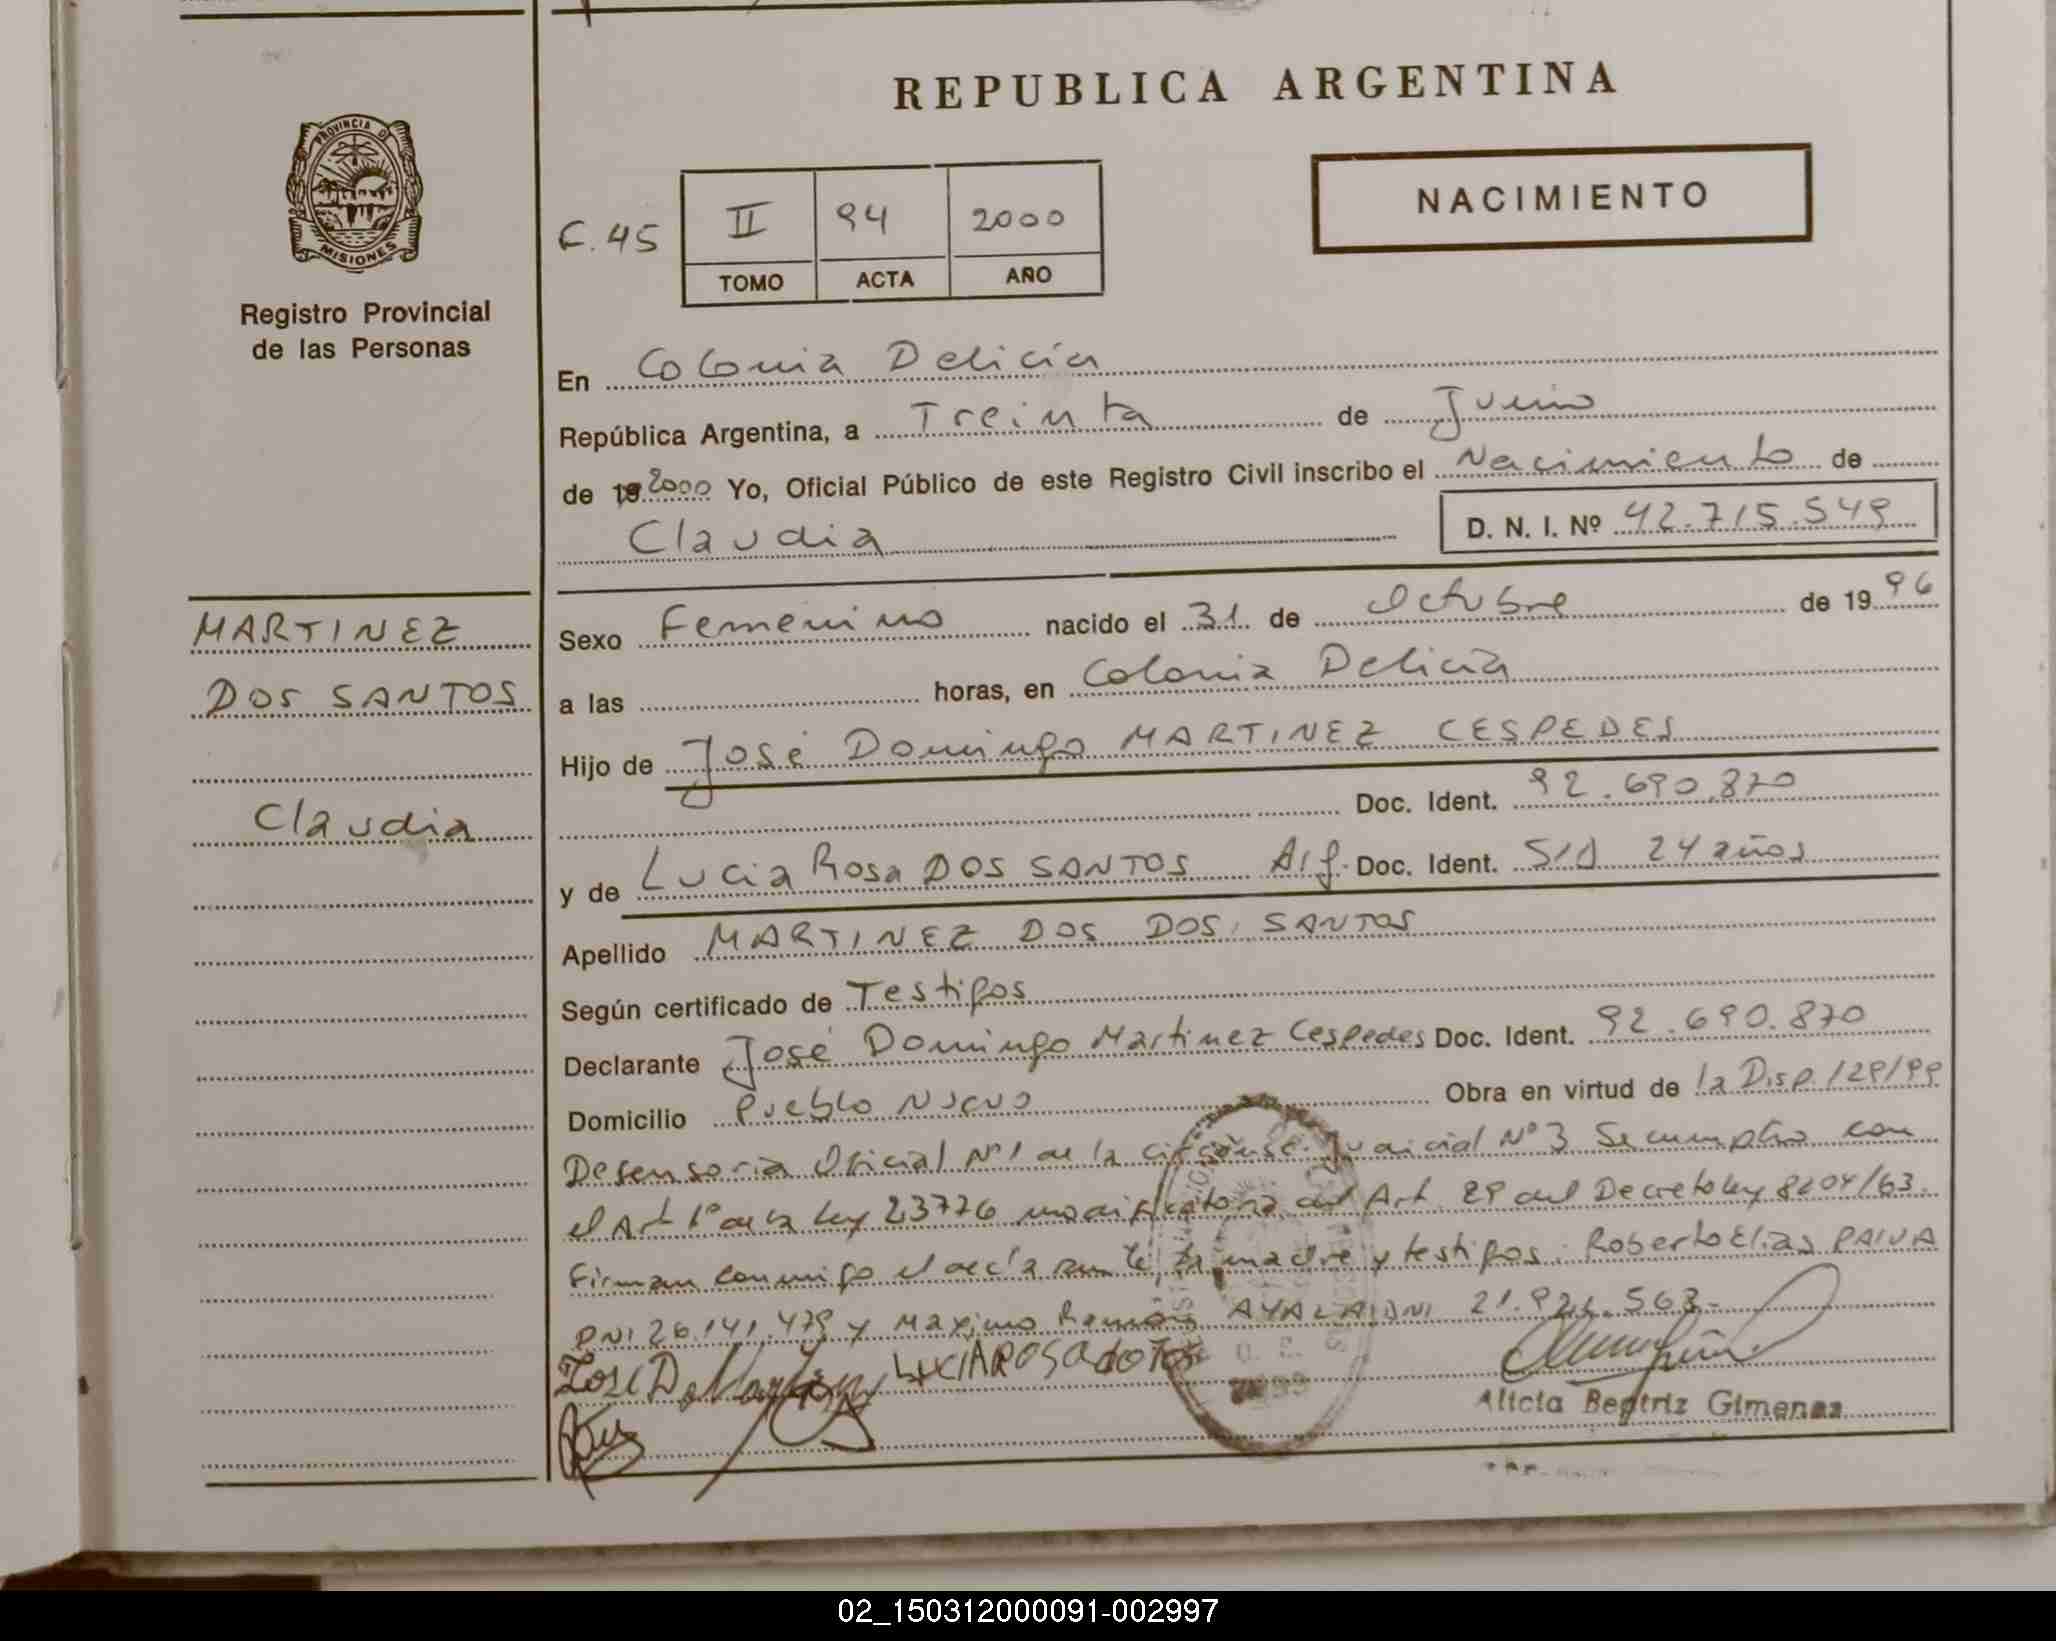 REPUBLICA ARGENTINA
PROVINCIA D
MISIONES
Registro Provincial
de las Personas
NACIMIENTO
F. 45
II 94 2000
TOMO ACTA AÑO
En Colonia Delicia
República Argentina, a Treinta de Junio
de 19 2000 Yo, Oficial Público de este Registro Civil inscribo el Nacimiento de
Claudia D. N. I. Nº 42.715.549
MARTINEZ
DOS SANTOS
Claudia
Sexo Femenino nacido el 31 de Octubre de 1996
a las horas, en Colonia Delicia
Hijo de José Domingo MARTINEZ CESPEDES
Doc. Ident. 92.690.870
y de Lucia Rosa DOS SANTOS Arg. Doc. Ident. S/D 24 años
Apellido MARTINEZ DOS DOS SANTOS
Según certificado de Testigos
Declarante José Domingo Martinez Cespedes Doc. Ident. 92.690.870
Domicilio Pueblo Nuevo Obra en virtud de la Disp. 129/99
Defensoria Oficial Nº 1 de la Judicial Nº 3 Se cumplio con
el Art 1º de la Ley 23776 modificatoria del Art. 29 del Decreto Ley 8204/63.
Firman conmigo el declarante, la madre y testigos: Roberto Elias PAIVA
DNI 26.141.479 y Maximo Ramón AYALA DNI 21.924.563-
José D. Martinez LUCIA ROSA
Alicia Beatriz Gimenez
02_150312000091-002997